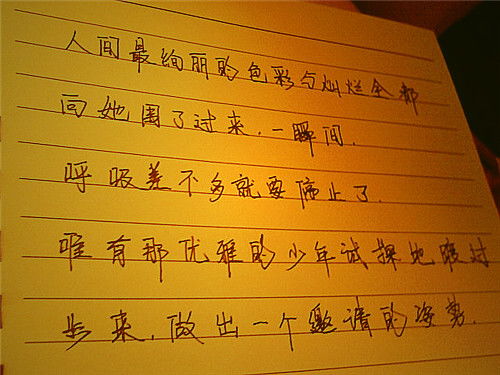 人间最绚丽的色彩与灿烂全都
向她围了过来,一瞬间,
呼吸差不多就要停止了.
唯有那优雅的少年试探地踱过
步来,做出一个邀请的姿势.